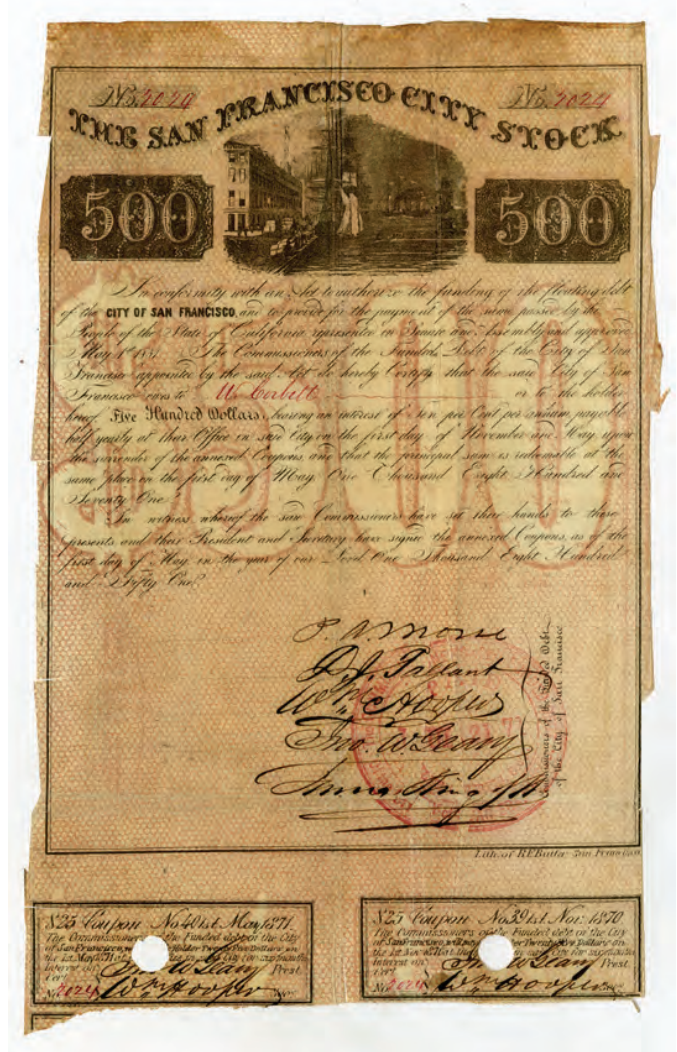 No. 2024 No. 2024
THE SAN FRANCISCO CITY STOCK
500 500
In conformity with an Act to authorize the funding of the floating debt
of the CITY OF SAN FRANCISCO, and to provide for the payment of the same passed by the
People of the State of California represented in Senate and Assembly and approved
May 1st 1851. The Commissioners of the Funded Debt of the City of San
Francisco appointed by the said Act do hereby Certify that the said City of San
Francisco owes to W. Corbitt or to the holder
hereof Five Hundred Dollars, bearing an interest of Ten per Cent per annum, payable
half yearly at their Office in said City on the first day of November and May, upon
the surrender of the annexed Coupons, and that the principal sum is redeemable at the
same place on the first day of May One Thousand Eight Hundred and
Seventy One.
In witness whereof the said Commissioners have set their hands to these
presents and their President and Secretary have signed the annexed Coupons, as of the
first day of May in the year of our Lord One Thousand Eight Hundred
and Fifty One.
$500
P. A. Morse
D. J. Tallant
Wm. Hooper
Jno. W. Geary
James King of Wm
Commissioners of the Funded Debt
of the City of San Francisco
Lith. of B.F. Butler San Francisco
$25 Coupon No 40 1st. May 1871.
The Commissioners of the Funded debt of the City
of San Francisco, will holder Twenty Five Dollars on
the 1st. May in said City for six months
Interest on
Jno W Geary Prest.
No. 2024 Wm Hooper
$25 Coupon No 39 1st. Nov. 1870
The Commissioners of the Funded debt in the City
of San Francisco, will pay Twenty Five Dollars on
the 1st Nov. said City for six months
Interest on
Jno W Geary Prest.
No. 2024 Wm Hooper